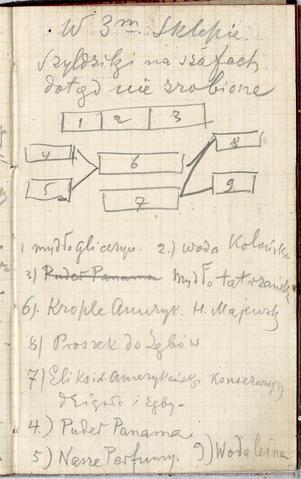 W 3m. Sklepie.
Szyldziki na szafach
dotąd nie zrobione
1 2 3
4 6 8
5 7 9
1 mydło gliceryn. 2.) woda Kolońska
3) Puder Panama mydło tatrzańskie
6). Krople Ameryk. H. Majewsk
8) Proszek do Zębów
7) Eliksir Amerykański Konserwujący
dziąsła i zęby.
4.) Puder Panama
5) Nasze Perfumy. 9) Woda leśna